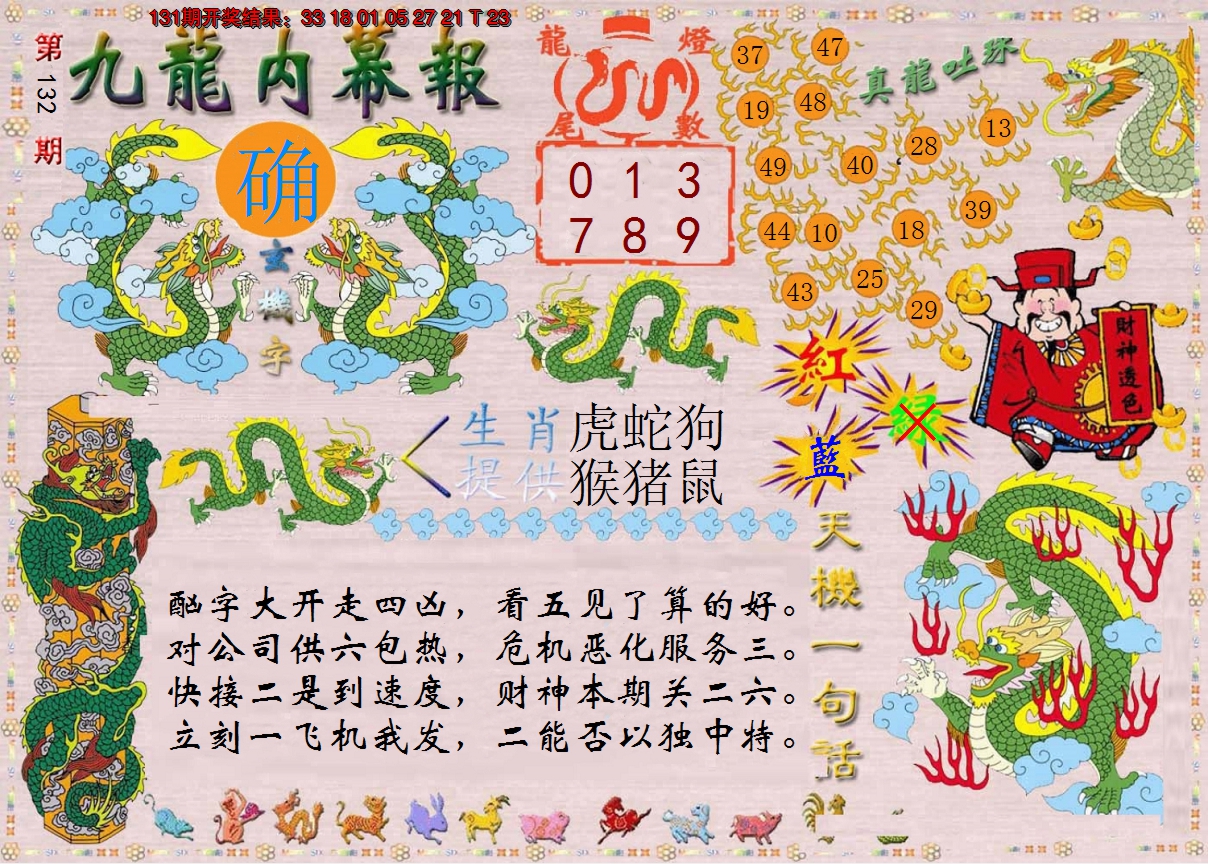 131期开奖结果：33 18 01 05 27 21 T 23
第132期
九龍内幕報
确
玄機字
龍燈尾數
0 1 3
7 8 9
真龍吐珠
37 47
19 48
28 13
49 40
39
44 10 18
25
43 29
財神透色
紅
绿
藍
生肖 虎蛇狗
提供 猴猪鼠
天機一句話
酗字大开走四凶，看五见了算的好。
对公司供六包热，危机恶化服务三。
快接二是到速度，财神本期关二六。
立刻一飞机我发，二能否以独中特。